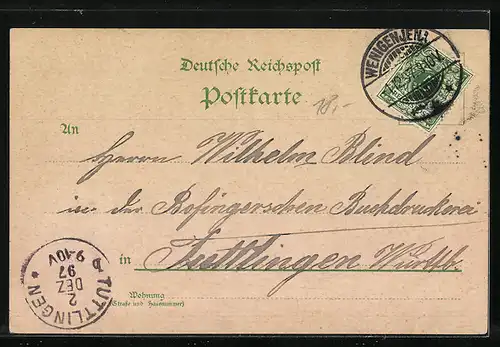 Deutsche Reichspost
Postkarte
18.-
WENIGENJENA
An
Herrn Wilhelm Blind
in der Bofinger'schen Buchdruckerei
in Tuttlingen Württb.
Wohnung
(Straße und Hausnummer)
TUTTLINGEN
2
DEZ
97
9-10V
b